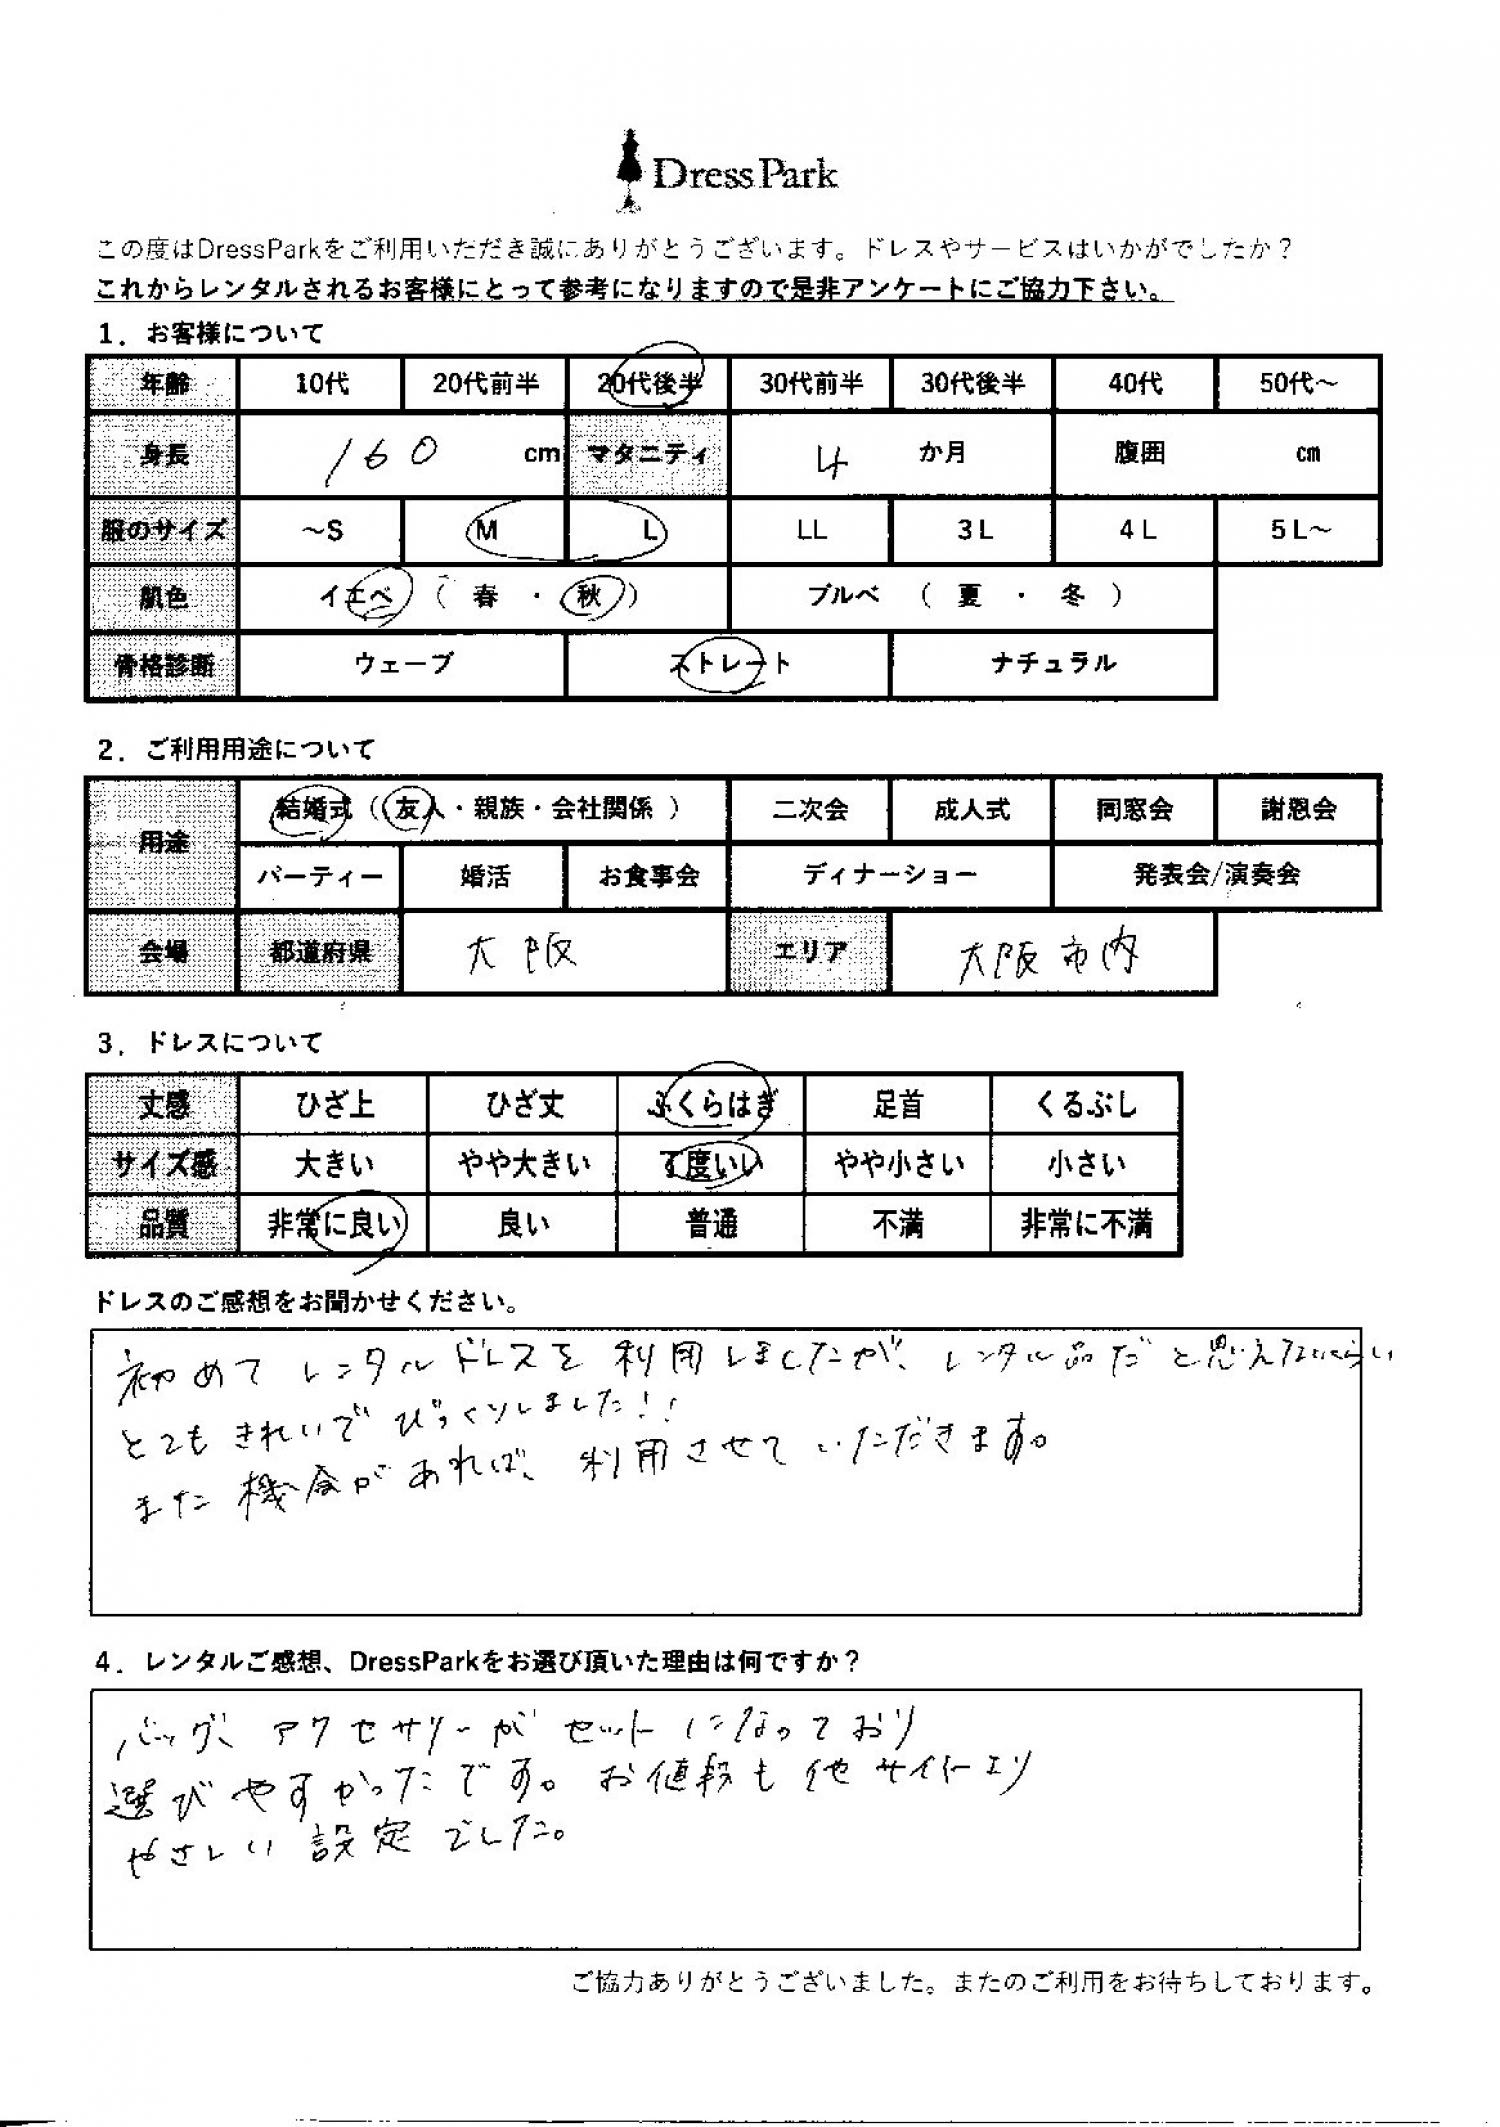 Dress Park
この度はDressParkをご利用いただき誠にありがとうございます。ドレスやサービスはいかがでしたか？
これからレンタルされるお客様にとって参考になりますので是非アンケートにご協力下さい。
1．お客様について
年齢 10代 20代前半 20代後半 30代前半 30代後半 40代 50代～
身長 160 cm マタニティ 4 か月 腹囲 cm
服のサイズ ～S M L LL 3L 4L 5L～
肌色 イエベ（ 春 ・ 秋 ） ブルベ （ 夏 ・ 冬 ）
骨格診断 ウェーブ ストレート ナチュラル
2．ご利用用途について
用途 結婚式（ 友人・親族・会社関係 ） 二次会 成人式 同窓会 謝恩会
パーティー 婚活 お食事会 ディナーショー 発表会/演奏会
会場 都道府県 大阪 エリア 大阪市内
3．ドレスについて
丈感 ひざ上 ひざ丈 ふくらはぎ 足首 くるぶし
サイズ感 大きい やや大きい 丁度いい やや小さい 小さい
品質 非常に良い 良い 普通 不満 非常に不満
ドレスのご感想をお聞かせください。
初めてレンタルドレスを利用しましたが、レンタル品だと思えないくらい
とてもきれいでびっくりしました!!
また機会があれば、利用させていただきます。
4．レンタルご感想、DressParkをお選び頂いた理由は何ですか？
バッグ、アクセサリーがセットになっており
選びやすかったです。お値段も他サイトより
やさしい設定でした。
ご協力ありがとうございました。またのご利用をお待ちしております。